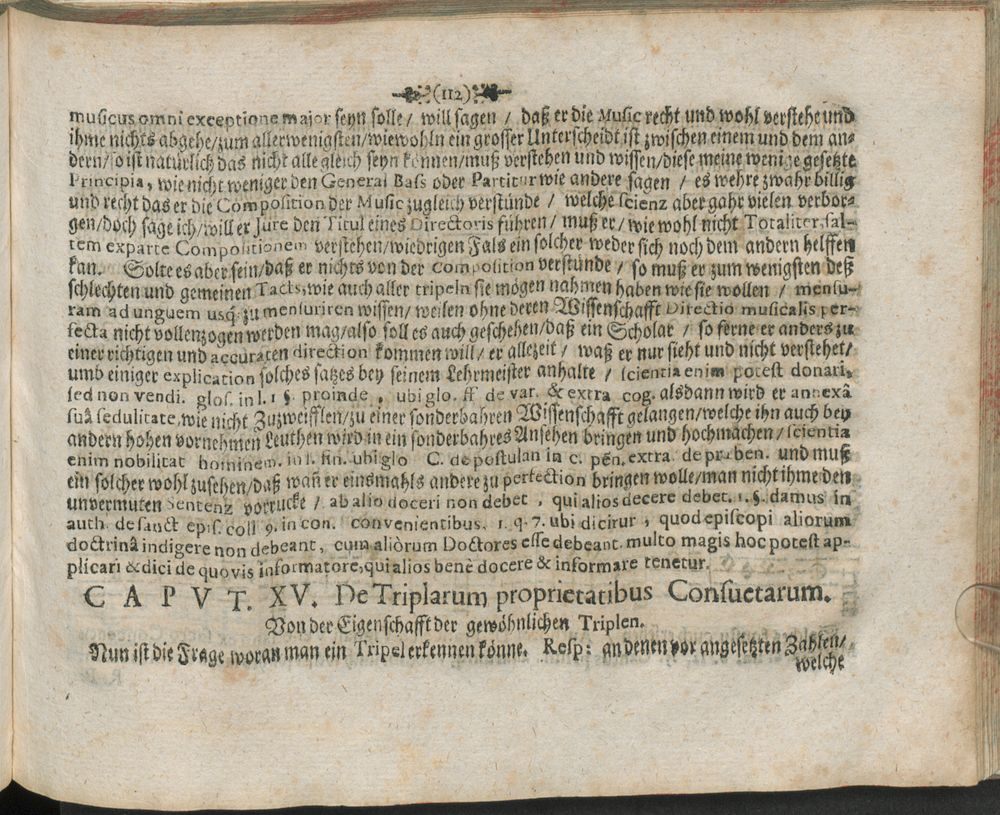 (112)
musicus omni exceptione major seyn solle / will sagen / daß er die Music recht und wohl verstehe und
ihme nichts abgehe / zum allerwenigsten / wiewohln ein grosser Unterscheidt ist zwischen einem und dem an-
dern / so ist natürlich das nicht alle gleich seyn können / muß verstehen und wissen / diese meine wenige gesetzte
Principia, wie nicht weniger den General Bass oder Partitur wie andere sagen / es wehre zwahr billig
und recht das er die Composition der Music zugleich verstünde / welche scienz aber gahr vielen verbor-
gen / doch sage ich / will er Jure den Titul eines Directoris führen / muß er / wie wohl nicht Totaliter, sal-
tem exparte Compositionem verstehen / wiedrigen Fals ein solcher weder sich noch dem andern helffen
kan. Solte es aber sein / daß er nichts von der Composition verstünde / so muß er zum wenigsten deß
schlechten und gemeinen Tacts, wie auch aller tripeln sie mögen nahmen haben wie sie wollen / mensu-
ram ad unguem usq; zu mensuriren wissen / weilen ohne deren Wissenschafft Directio musicalis per-
fecta nicht vollenzogen werden mag / also soll es auch geschehen / daß ein Scholar / so ferne er anders zu
einer richtigen und accuraten direction kommen will / er allezeit / waß er nur sieht und nicht verstehet /
umb einiger explication solches satzes bey seinem Lehrmeister anhalte / scientia enim potest donari,
sed non vendi. glos. in l. 1 §. proinde , ubi glo. ff de var. & extra cog. alsdann wird er annexâ
suâ sedulitate, wie nicht Zuzweifflen / zu einer sonderbahren Wissenschafft gelangen / welche ihn auch bey
andern hohen vornehmen Leuthen wird in ein sonderbahres Ansehen bringen und hochmachen / scientia
enim nobilitat hominem. in l. fin. ubi glo C. de postulan in c. pēn. extra. de præben. und muß
ein solcher wohl zusehen / daß wañ er einsmahls andere zu perfection bringen wolle / man nicht ihme den
unvermuten Sentenz vorrucke / ab alio doceri non debet , qui alios decere debet. 1. §. damus in
auth. de sanct epis. coll 9. in con. convenientibus. 1. q. 7. ubi dicirur , quod episcopi aliorum
doctrinâ indigere non debeant, cum aliòrum Doctores esse debeant. multo magis hoc potest ap-
plicari & dici de quovis informatore, qui alios benè docere & informare tenetur.
CAPVT. XV. De Triplarum proprietatibus Consuetarum.
Von der Eigenschafft der gewöhnlichen Triplen.
Nun ist die Frage woran man ein Tripel erkennen könne. Resp: an denen vor angesetzten Zahlen /
welche